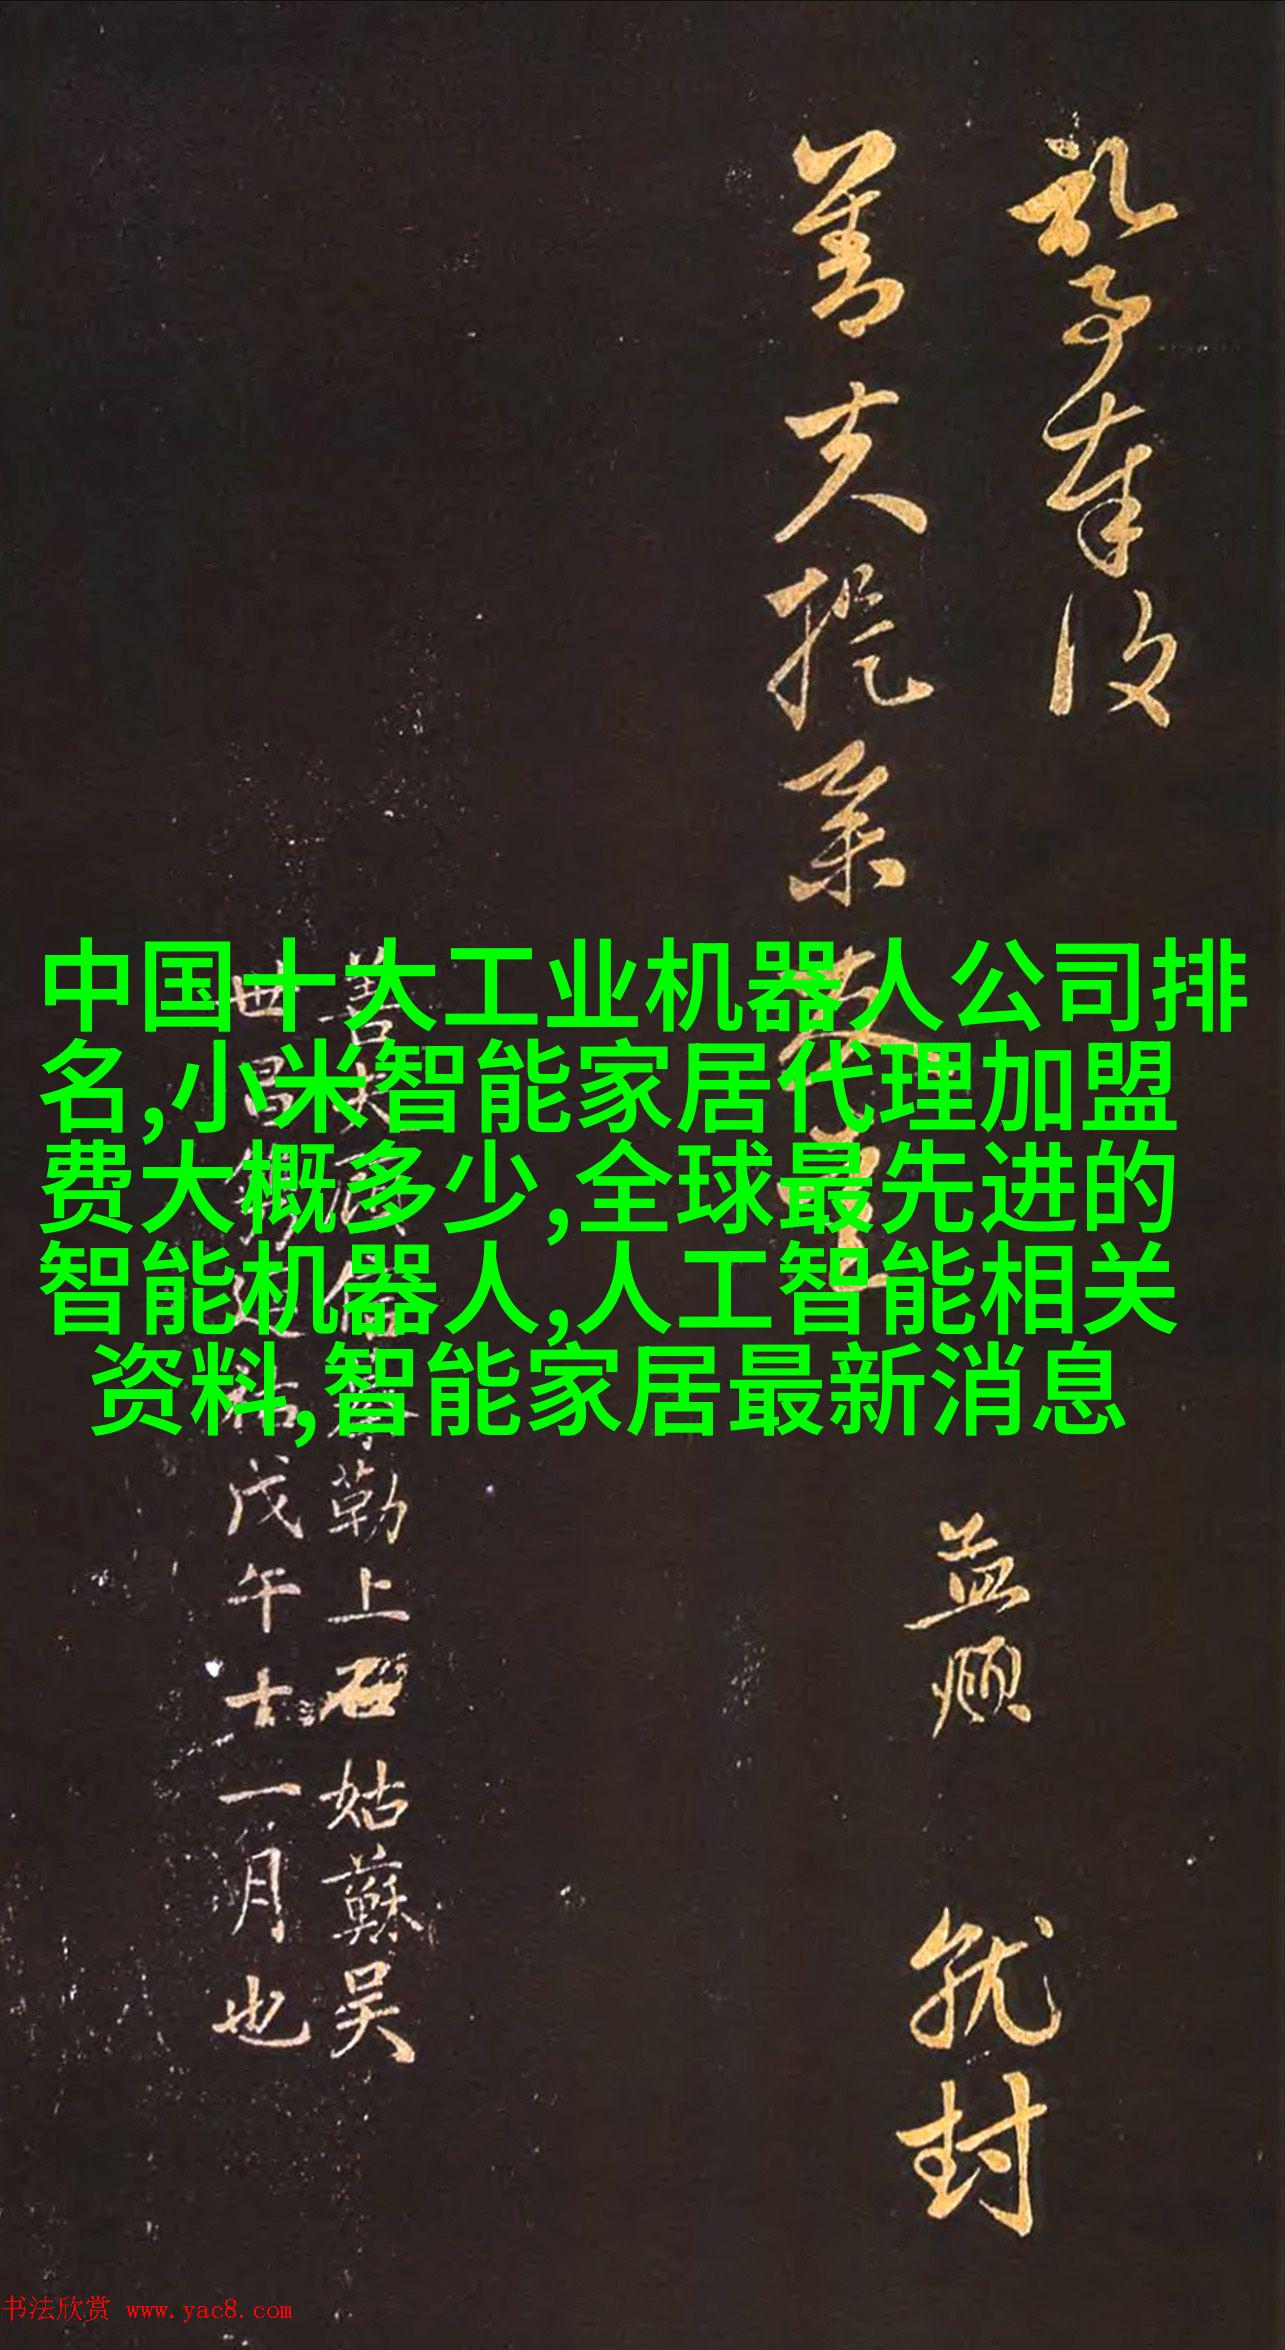 善夫提举
益顺
就封
勒上石姑蘇吴
戊午十一月也
中国十大工业机器人公司排
名,小米智能家居代理加盟
费大概多少,全球最先进的
智能机器人,人工智能相关
资料,智能家居最新消息
书法欣赏 www.yac8.com